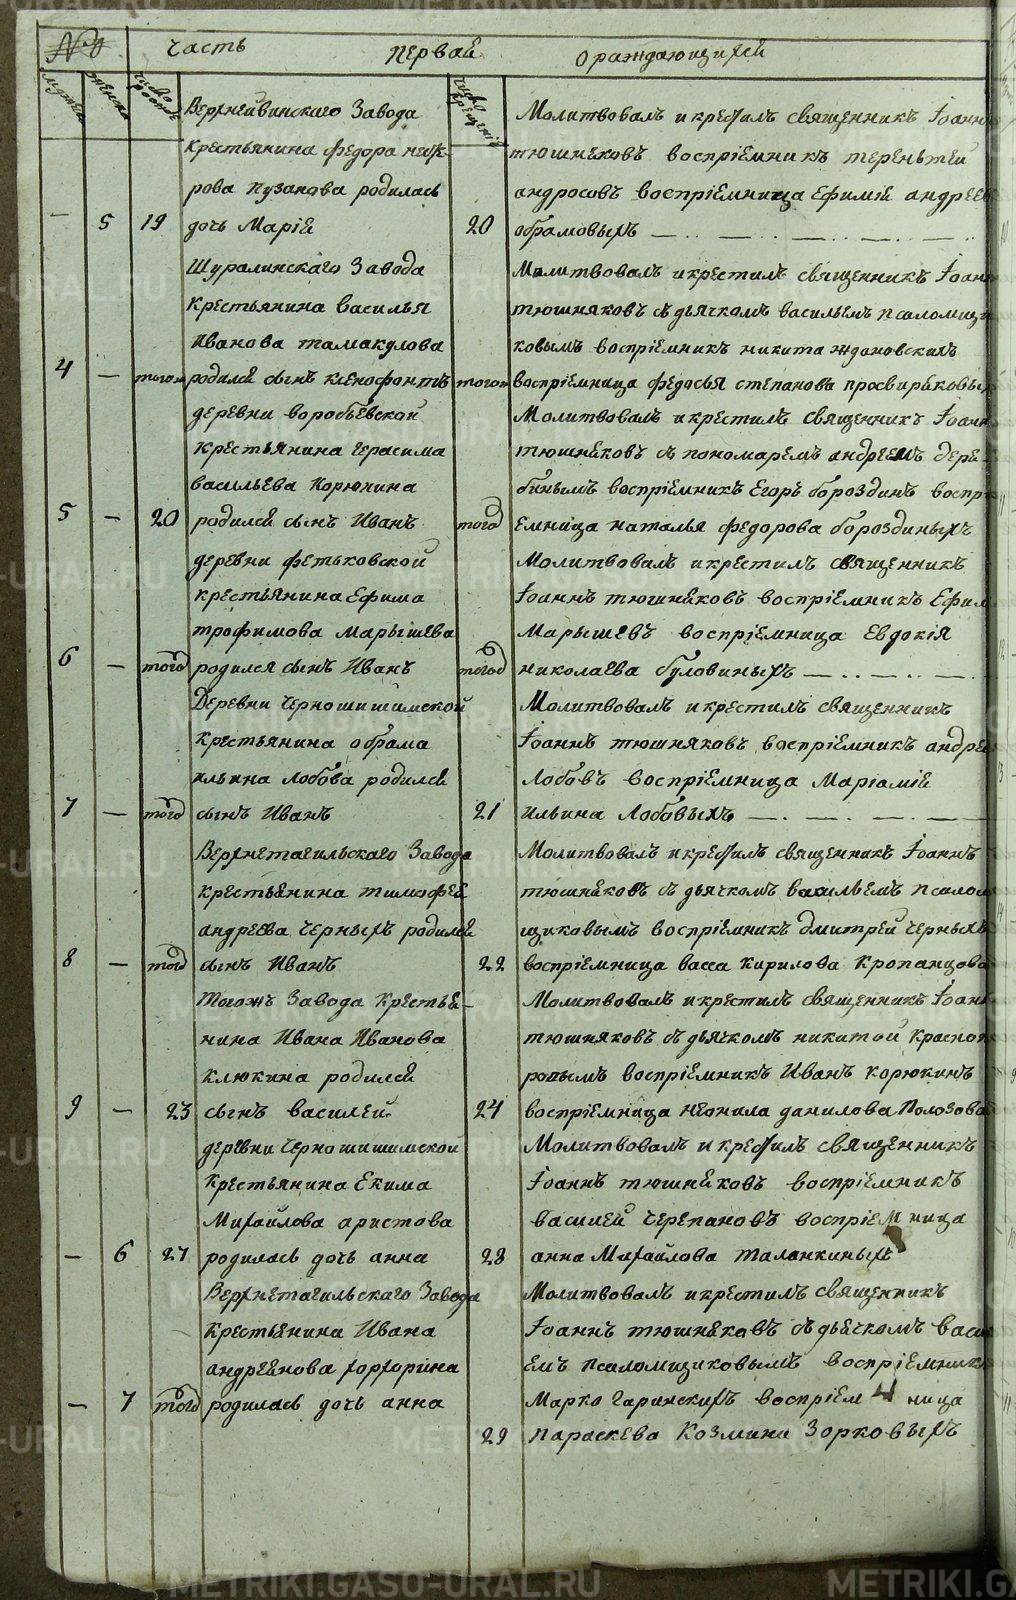 № Часть первай ораждающихсѣй
мужеска женска число рожденія число крещенія
Верхнейвинскаго Завода
Крестьянина Федора никѣ-
рова Пузанова родилась
— 5 19 дочь Марія
Шуралинскаго Завода
Крестьянина Василья
Иванова Тамакулова
4 — того родился сынъ Ксенофонтъ
деревни воробьевской
Крестьянина Герасима
васильева Корюкина
5 — 20 родился сынъ Иванъ
деревни фетьковской
крестьянина Ефима
трофимова Марышева
6 — того родился сынъ Иванъ
Деревни Черношишимской
Крестьянина обрама
ильина Лобова родился
7 — того сынъ Иванъ
Верхнетагильскаго Завода
крестьянина тимофея
андреева Черныхъ родился
8 — того сынъ Иванъ
Тогожъ Завода Крестья-
нина Ивана Иванова
Клюкина родился
9 — 23 сынъ василей
деревни Черношишимской
Крестьянина Екима
Михайлова аристова
— 6 27 родилась дочь анна
Верхнетагильскаго Завода
Крестьянина Ивана
андреянова
— 7 того родилась дочь анна
Молитвовалъ и крестилъ священникъ Іоанн
тюшняковъ воспріемникъ терентей
андросовъ воспріемница Ефимія андреев
20 обрамовыхъ
Молитвовалъ и крестилъ священникъ Іоан
тюшняковъ съ дьячкомъ васильемъ псаломщи
ковымъ воспріемникъ никита ждановскихъ
того воспріемница федосья степанова просвиряковых
Молитвовалъ и крестилъ священникъ Іоанн
тюшняковъ съ пономаремъ андреемъ дере-
бинымъ воспріемникъ Егоръ бороздинъ воспр
того емница наталья федорова бороздиныхъ
Молитвовалъ и крестилъ священникъ
Іоаннъ тюшняковъ воспріемникъ Ефим
Марышевъ воспріемница Евдокія
того николаева буловиныхъ
Молитвовалъ и крестилъ священникъ
Іоаннъ тюшняковъ воспріемникъ андре
Лобовъ воспріемница Маріамія
21 ильина Лобовыхъ
Молитвовалъ и крестилъ священникъ Іоаннъ
тюшняковъ съ дьячкомъ васильемъ псалом
щиковымъ воспріемникъ дмитрей Черныхъ
22 воспріемница васса Кирилова Кропанцова
Молитвовалъ и крестилъ священникъ Іоан
тюшняковъ съ дьячкомъ никитой Красноп
ровымъ воспріемникъ Иванъ Корюкинъ
24 воспріемница Неонила данилова Полозова
Молитвовалъ и крестилъ священникъ
Іоаннъ тюшняковъ воспріемникъ
василей Черепановъ воспріемница
28 анна Михайлова таланкиныхъ
Молитвовалъ и крестилъ священникъ
Іоаннъ тюшняковъ съ дьячкомъ васи
емъ псаломщиковымъ воспріемник
Марко Гаринскихъ воспріемница
29 Параскева Козмина Зорковыхъ
METRIKI.GASO-URAL.RU